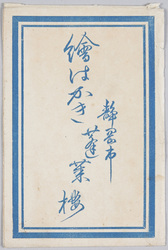 繪はかき
静岡市
蓬莱楼